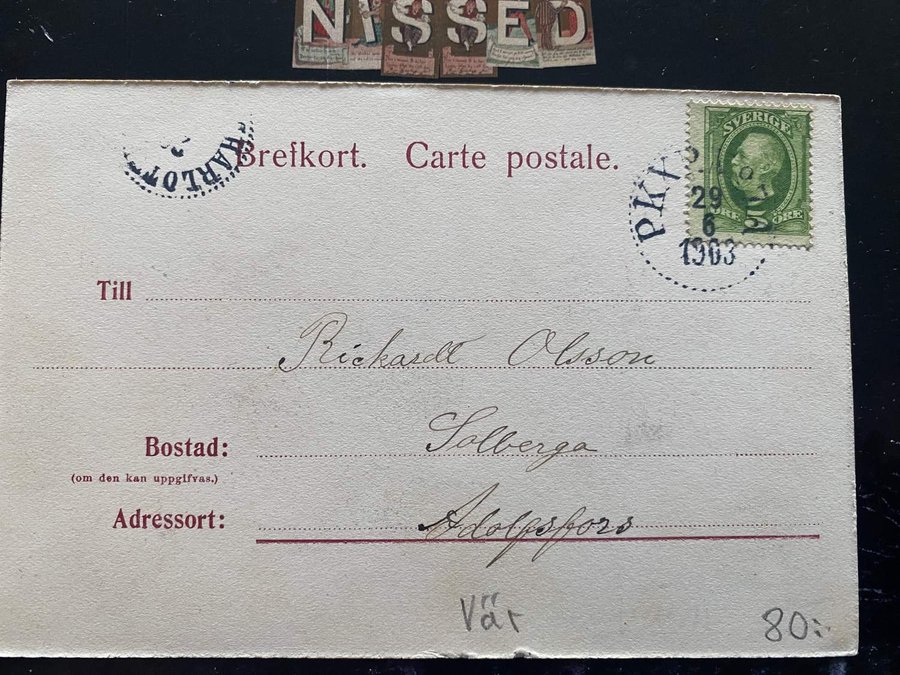 NISSED
Brefkort. Carte postale.
HARLOTT
SVERIGE
ÖRE 5 ÖRE
PKXP
29
6
1903
Till
Rickardt Olsson
Solberga
Bostad:
(om den kan uppgifvas.)
Adressort:
Adolfsfors
Vär
80:-